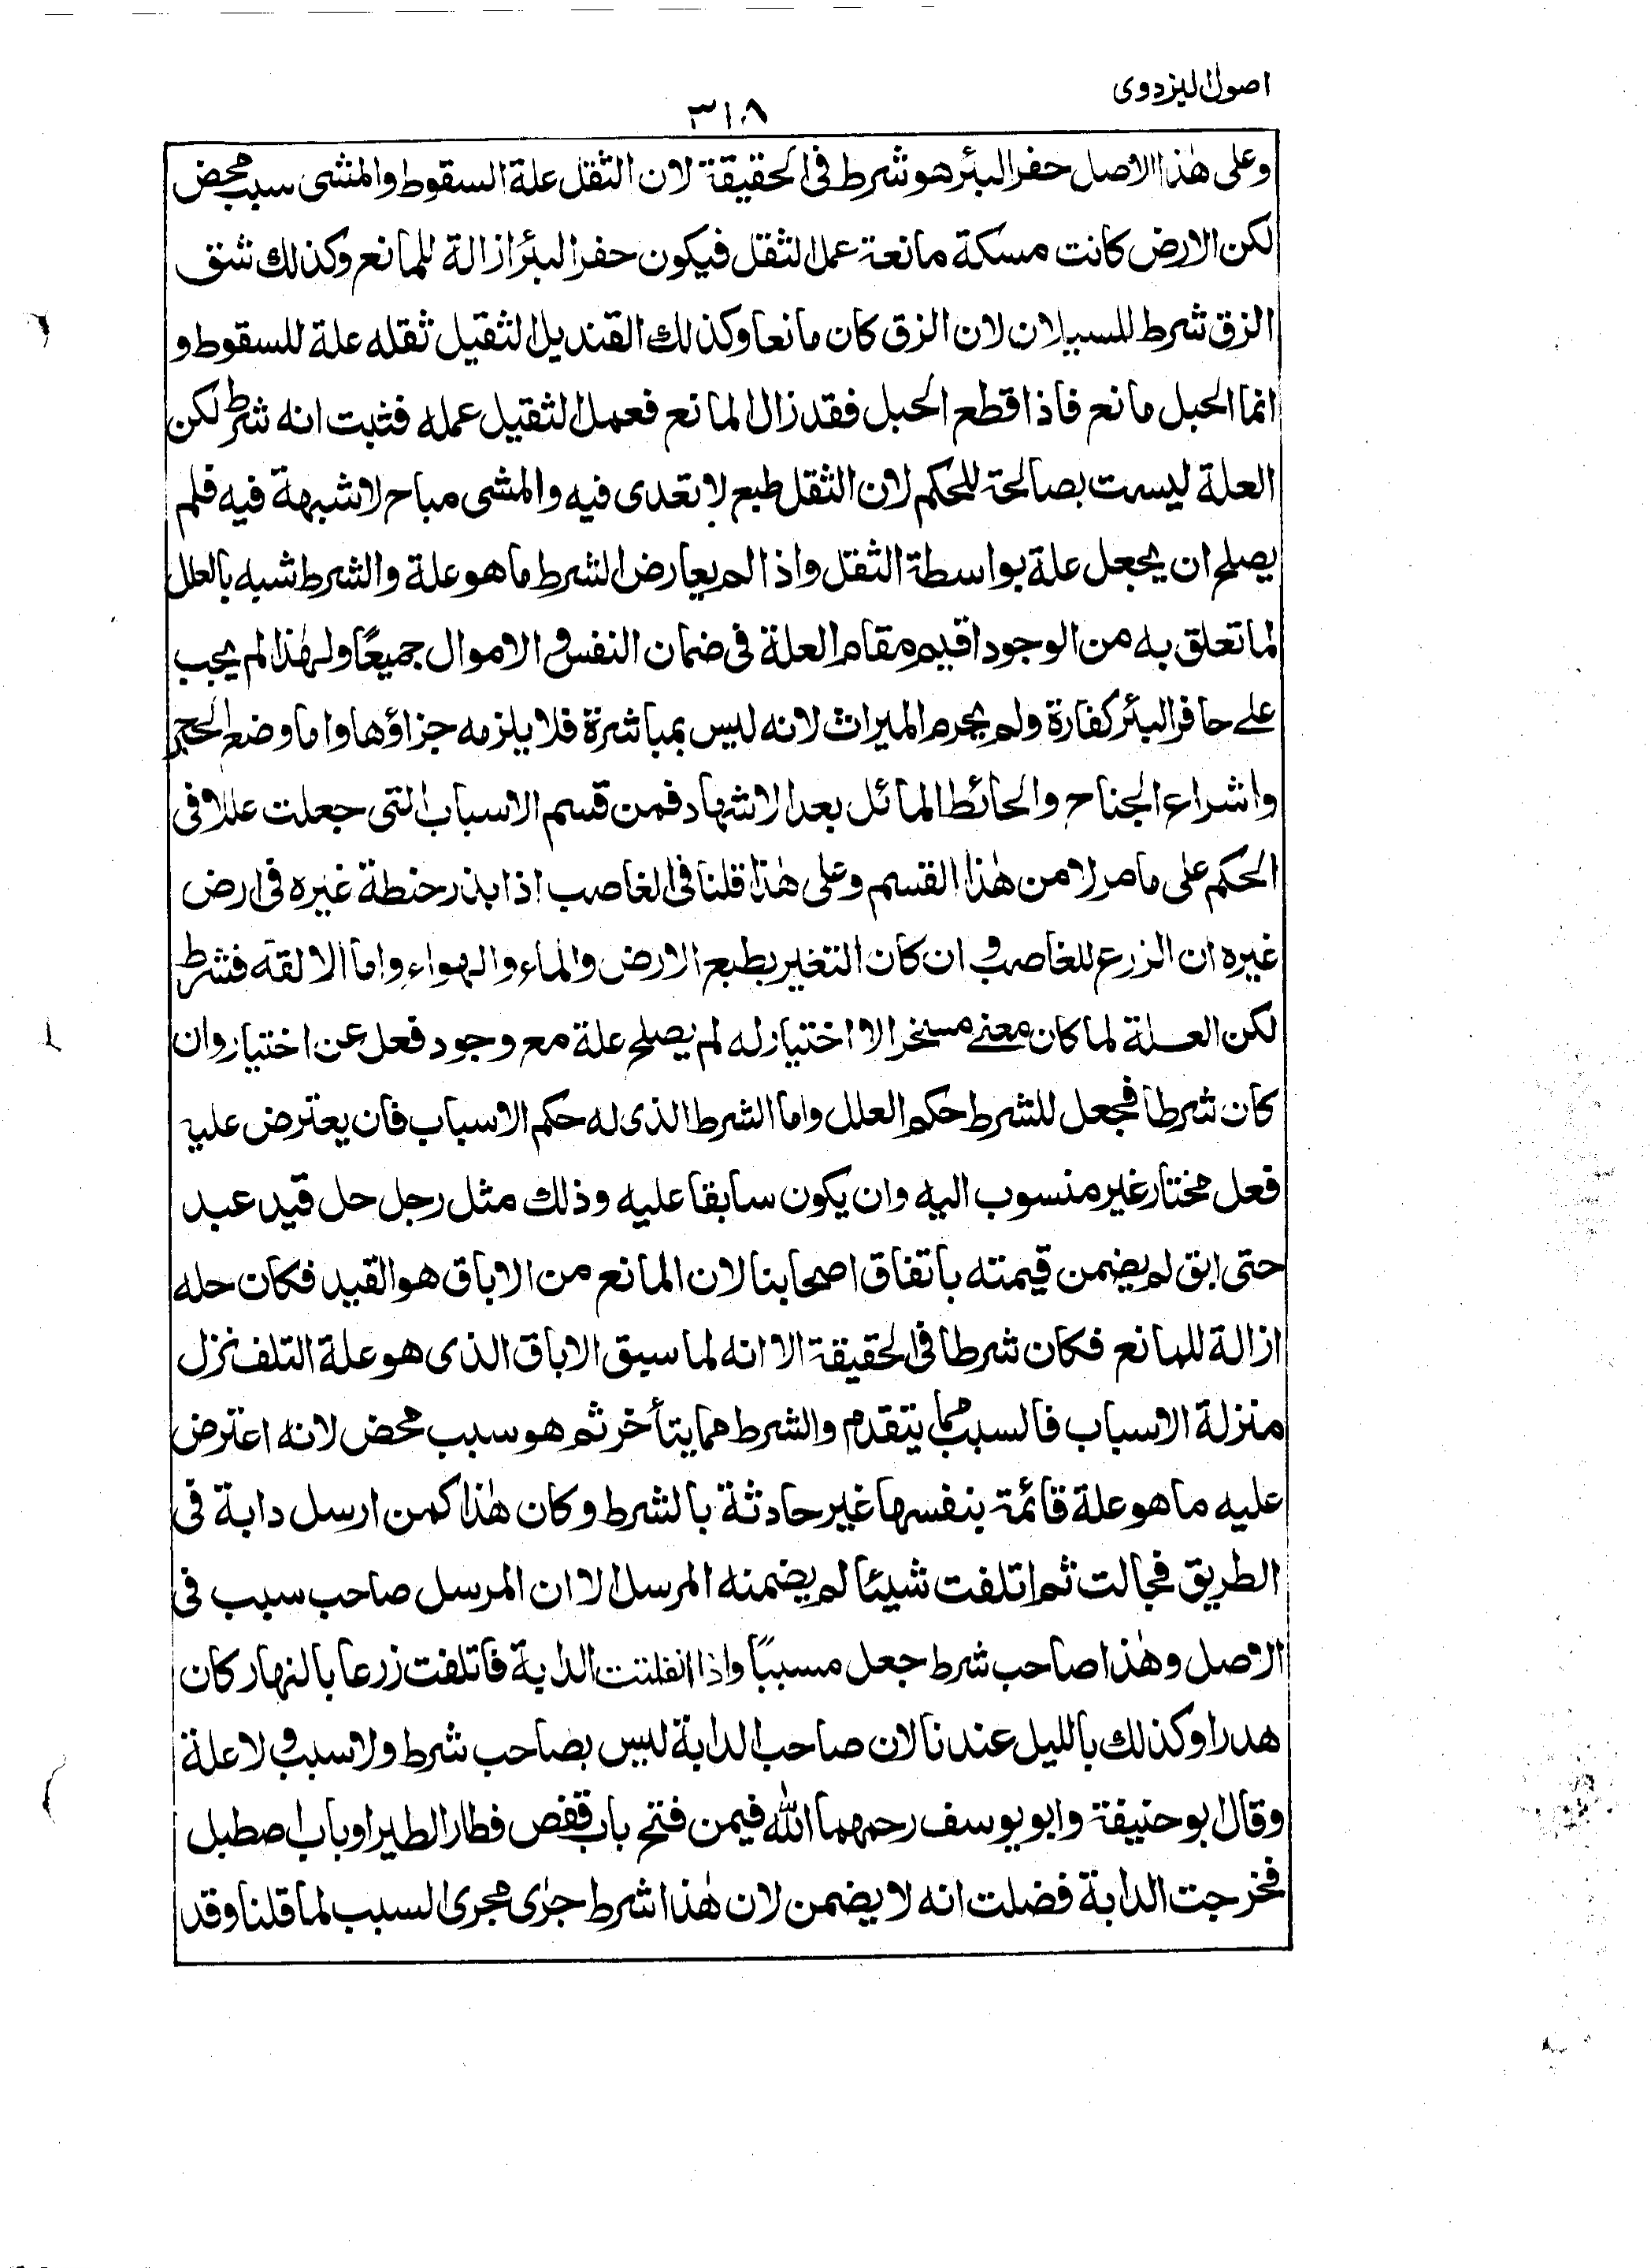 اصول البزدوی
٣١٨
وعلى هٰذا الاصل حفر البئر هو شرط فى الحقيقة لان الثقل علة السقوط والمشى سبب محض
لكن الارض كانت مسكة مانعة عمل الثقل فيكون حفر البئر ازالة للمانع وكذلك شق
الزق شرط للسيلان لان الزق كان مانعا وكذلك القنديل الثقيل ثقله علة للسقوط و
انما الحبل مانع فاذا قطع الحبل فقد زال المانع فعمل الثقيل عمله فثبت انه شرط لكن
العلة ليست بصالحة للحكم لان الثقل طبع لا تعدى فيه والمشى مباح لا شبهة فيه فلم
يصلح ان يجعل علة بواسطة الثقل واذا لم يعارض الشرط ما هو علة والشرط شبه بالعلل
لما تعلق به من الوجود اقيم مقام العلة فى ضمان النفس و الاموال جميعًا ولهٰذا لم يجب
على حافر البئر كفارة ولم يحرم الميراث لانه ليس بمباشرة فلا يلزمه جزاؤها واما وضع الحجر
واشراع الجناح والحائط المائل بعد الاشهاد فمن قسم الاسباب التى جعلت عللا فى
الحكم على ما مر لا من هٰذا القسم وعلى هٰذا قلنا فى الغاصب اذا بذر حنطة غيره فى ارض
غيره ان الزرع للغاصب و ان كان التغير بطبع الارض والماء والهواء واما الالقه فشرط
لكن العلة لما كان معنے مسخرا لا اختيار له لم يصلح علة مع وجود فعل عن اختيار وان
كان شرطا فجعل للشرط حكم العلل واما الشرط الذى له حكم الاسباب فان يعترض عليه
فعل مختار غير منسوب اليه وان يكون سابقا عليه وذلك مثل رجل حل قيد عبد
حتى ابق لم يضمن قيمته باتفاق اصحابنا لان المانع من الاباق هو القيد فكان حله
ازالة للمانع فكان شرطا فى الحقيقة الا انه لما سبق الاباق الذى هو علة التلف نزل
منزلة الاسباب فالسبب مما يتقدم والشرط مما يتأخر ثم هو سبب محض لانه اعترض
عليه ما هو علة قائمة بنفسها غير حادثة بالشرط وكان هٰذا كمن ارسل دابة فى
الطريق فجالت ثم اتلفت شيئا لم يضمنه المرسل الا ان المرسل صاحب سبب فى
الاصل وهٰذا صاحب شرط جعل مسببًا واذا انفلتت الدابة فاتلفت زرعا بالنهار كان
هدرا وكذلك بالليل عندنا لان صاحب الدابة ليس بصاحب شرط ولا سبب و لا علة
وقال ابو حنيفة وابو يوسف رحمهما الله فيمن فتح باب قفص فطار الطير او باب اصطبل
فخرجت الدابة فضلت انه لا يضمن لان هٰذا شرط جرٰى مجرى السبب لما قلنا وقد